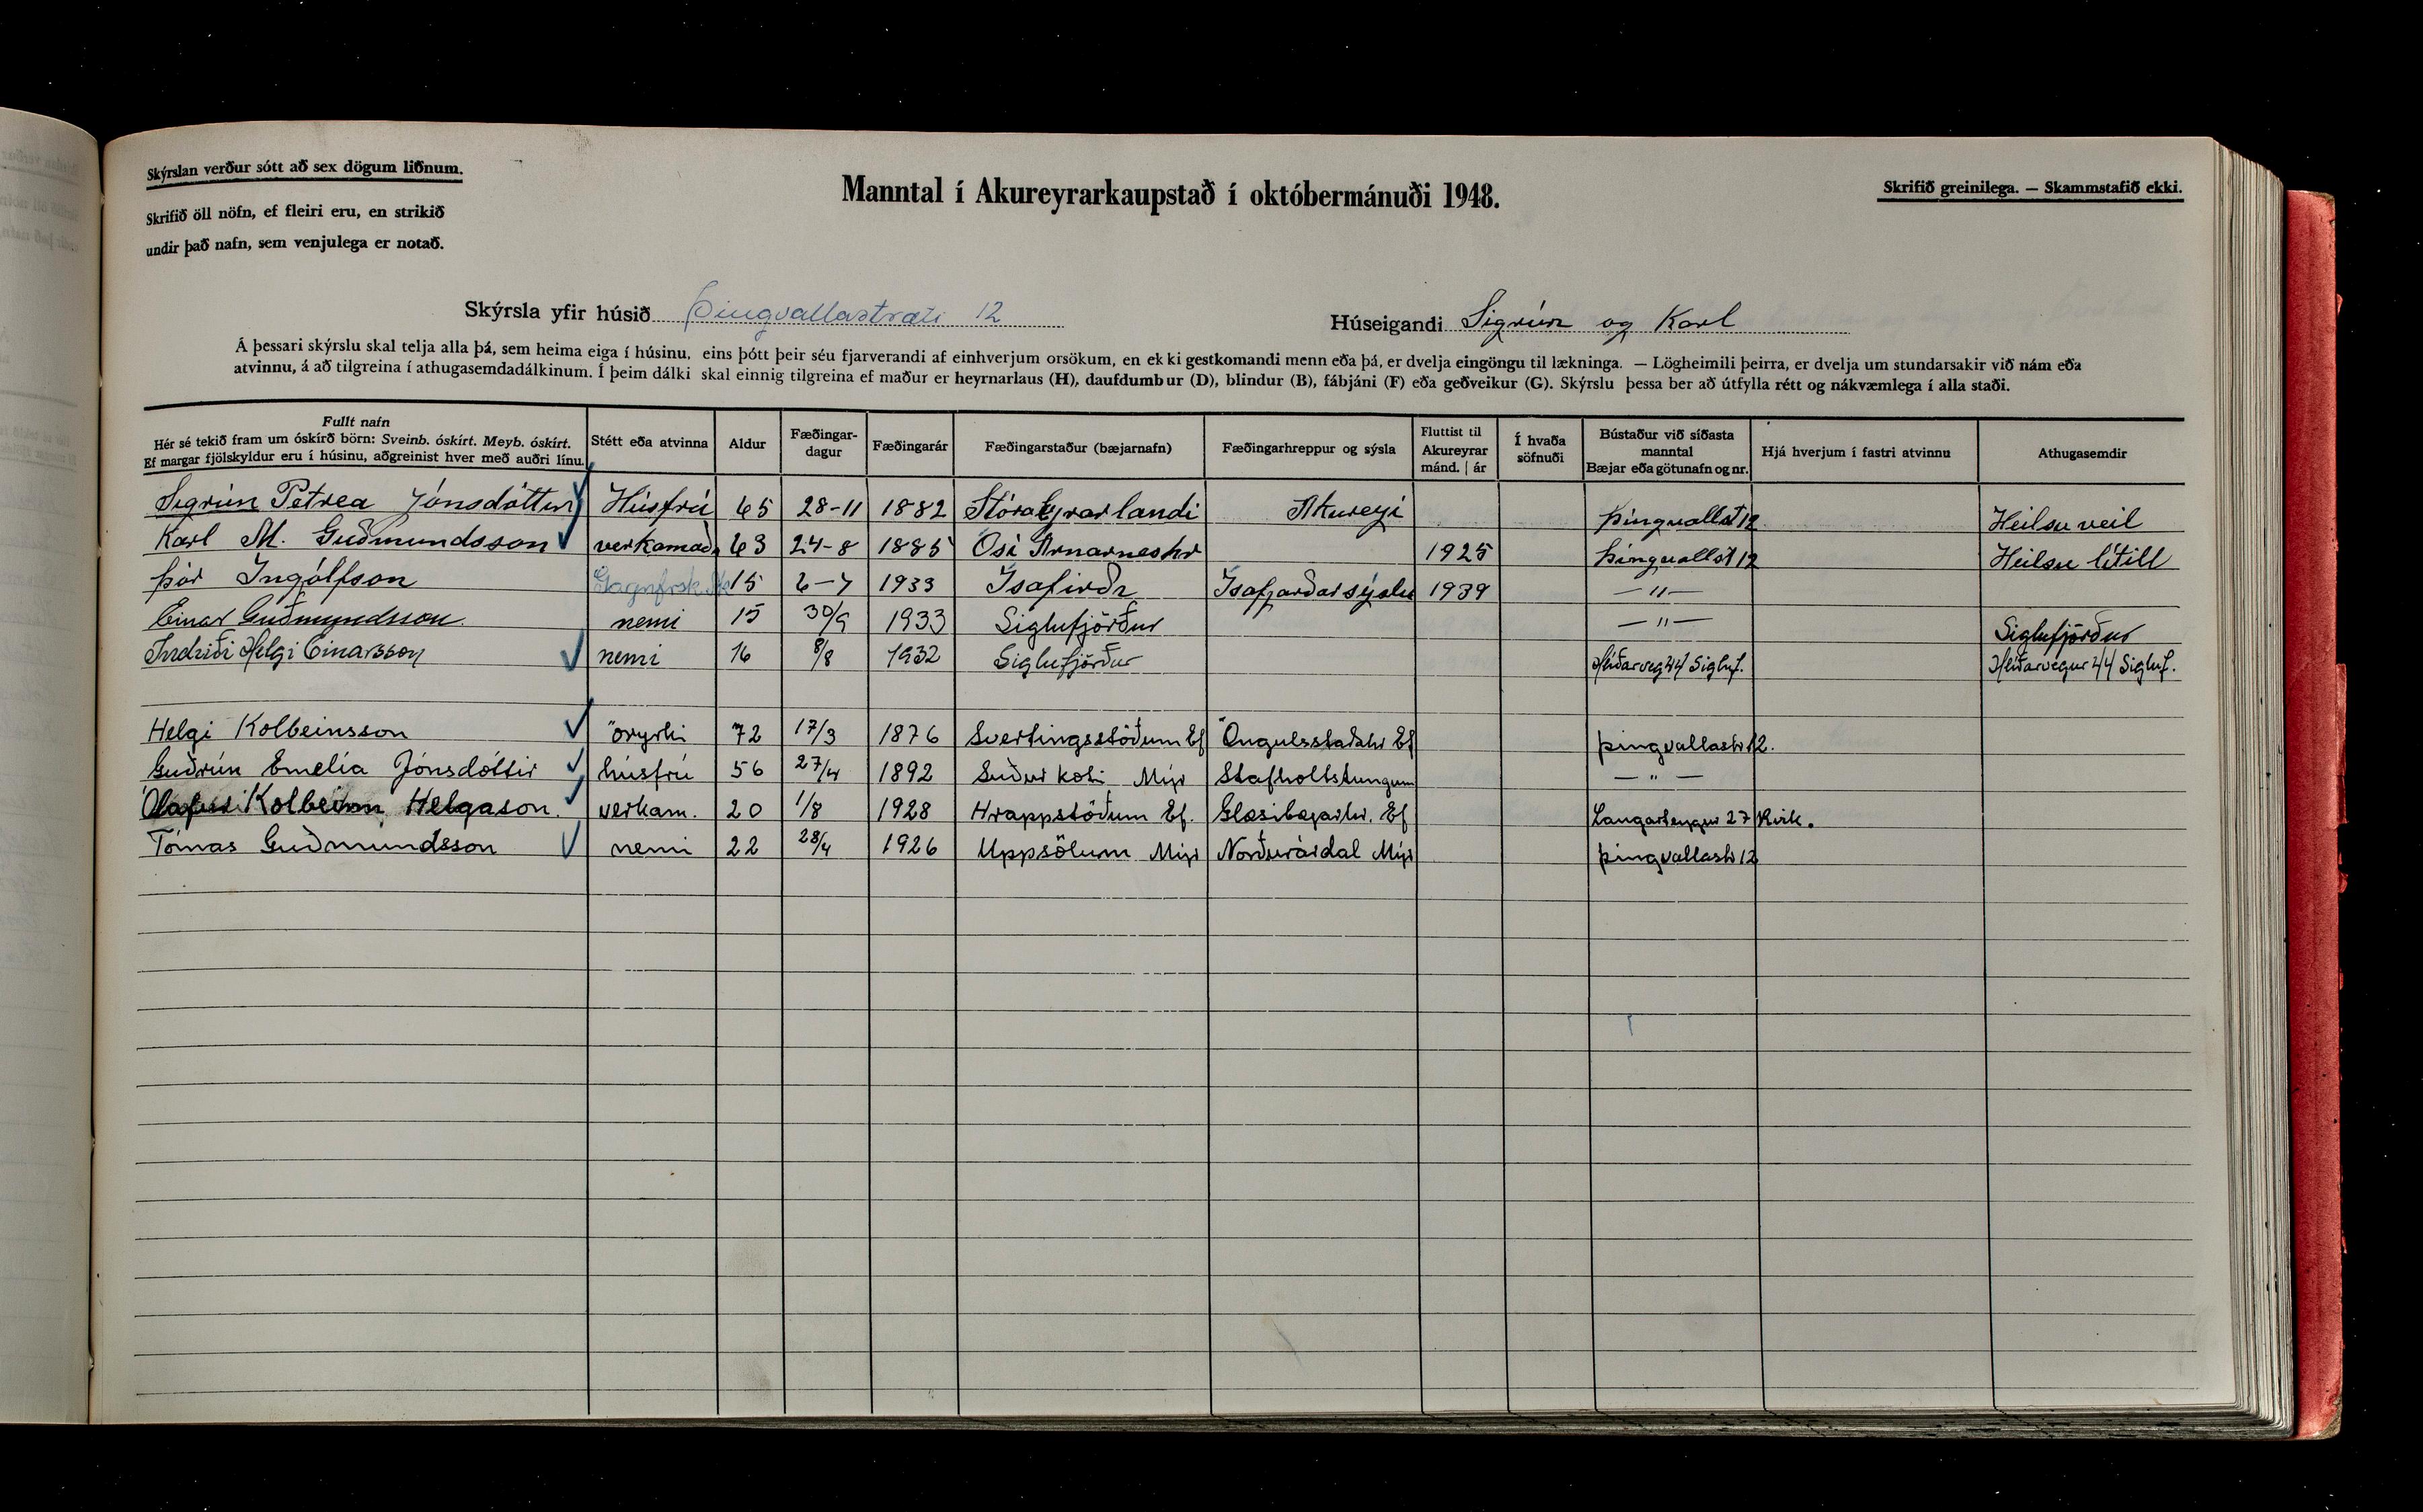 Skýrslan verður sótt að sex dögum liðnum.
Skrifið öll nöfn, ef fleiri eru, en strikið
undir það nafn, sem venjulega er notað.
Manntal í Akureyrarkaupstað í októbermánuði 1948.
Skrifið greinilega. — Skammstafið ekki.
Skýrsla yfir húsið Þingvallastræti 12
Húseigandi Sigrún og Karl
Á þessari skýrslu skal telja alla þá, sem heima eiga í húsinu, eins þótt þeir séu fjarverandi af einhverjum orsökum, en ekki gestkomandi menn eða þá, er dvelja eingöngu til lækninga. — Lögheimili þeirra, er dvelja um stundarsakir við nám eða
atvinnu, á að tilgreina í athugasemdadálkinum. Í þeim dálki skal einnig tilgreina ef maður er heyrnarlaus (H), daufdumbur (D), blindur (B), fábjáni (F) eða geðveikur (G). Skýrslu þessa ber að útfylla rétt og nákvæmlega í alla staði.
Fullt nafn
Hér sé tekið fram um óskírð börn: Sveinb. óskírt. Meyb. óskírt.
Ef margar fjölskyldur eru í húsinu, aðgreinist hver með auðri línu.
Stétt eða atvinna
Aldur
Fæðingar-
dagur
Fæðingarár
Fæðingarstaður (bæjarnafn)
Fæðingarhreppur og sýsla
Fluttist til
Akureyrar
mánd. | ár
Í hvaða
söfnuði
Bústaður við síðasta
manntal
Bæjar eða götunafn og nr.
Hjá hverjum í fastri atvinnu
Athugasemdir
Sigrún Petrea Jónsdóttir Húsfrú 65 28-11 1882 Stóra Eyrarlandi Akureyri Þingvallst 12 Heilsuveil
Karl M. Guðmundsson verkamaðr 63 24-8 1885 Ósi Arnarneshr 1925 Þingvallst 12 Heilsu lítill
Þór Ingólfson Gagnfrsk 15 6-7 1933 Ísafirðr Ísafjarðarsýslu 1939 — " —
Einar Guðmundsson nemi 15 30/9 1933 Siglufjörður — " — Siglufjörður
Indriði Helgi Einarsson nemi 16 8/8 1932 Siglufjörður Hlíðarveg 44 Sigluf. Hlíðarvegur 44 Sigluf.
Helgi Kolbeinsson öryrki 72 17/3 1876 Svertingsstöðum Ef Öngulsstaðahr Ef Þingvallastr 12.
Guðrún Emelía Jónsdóttir húsfrú 56 27/4 1892 Suðurkoti Mýr Stafholtstungum — " —
Kolbeinn Helgason. verkam. 20 1/8 1928 Hrappstöðum Ef. Glæsibæjarhr. Ef Langartangur 27 Rvík.
Tómas Guðmundsson nemi 22 28/4 1926 Uppsölum Mýr Norðurárdal Mýr Þingvallastr 12